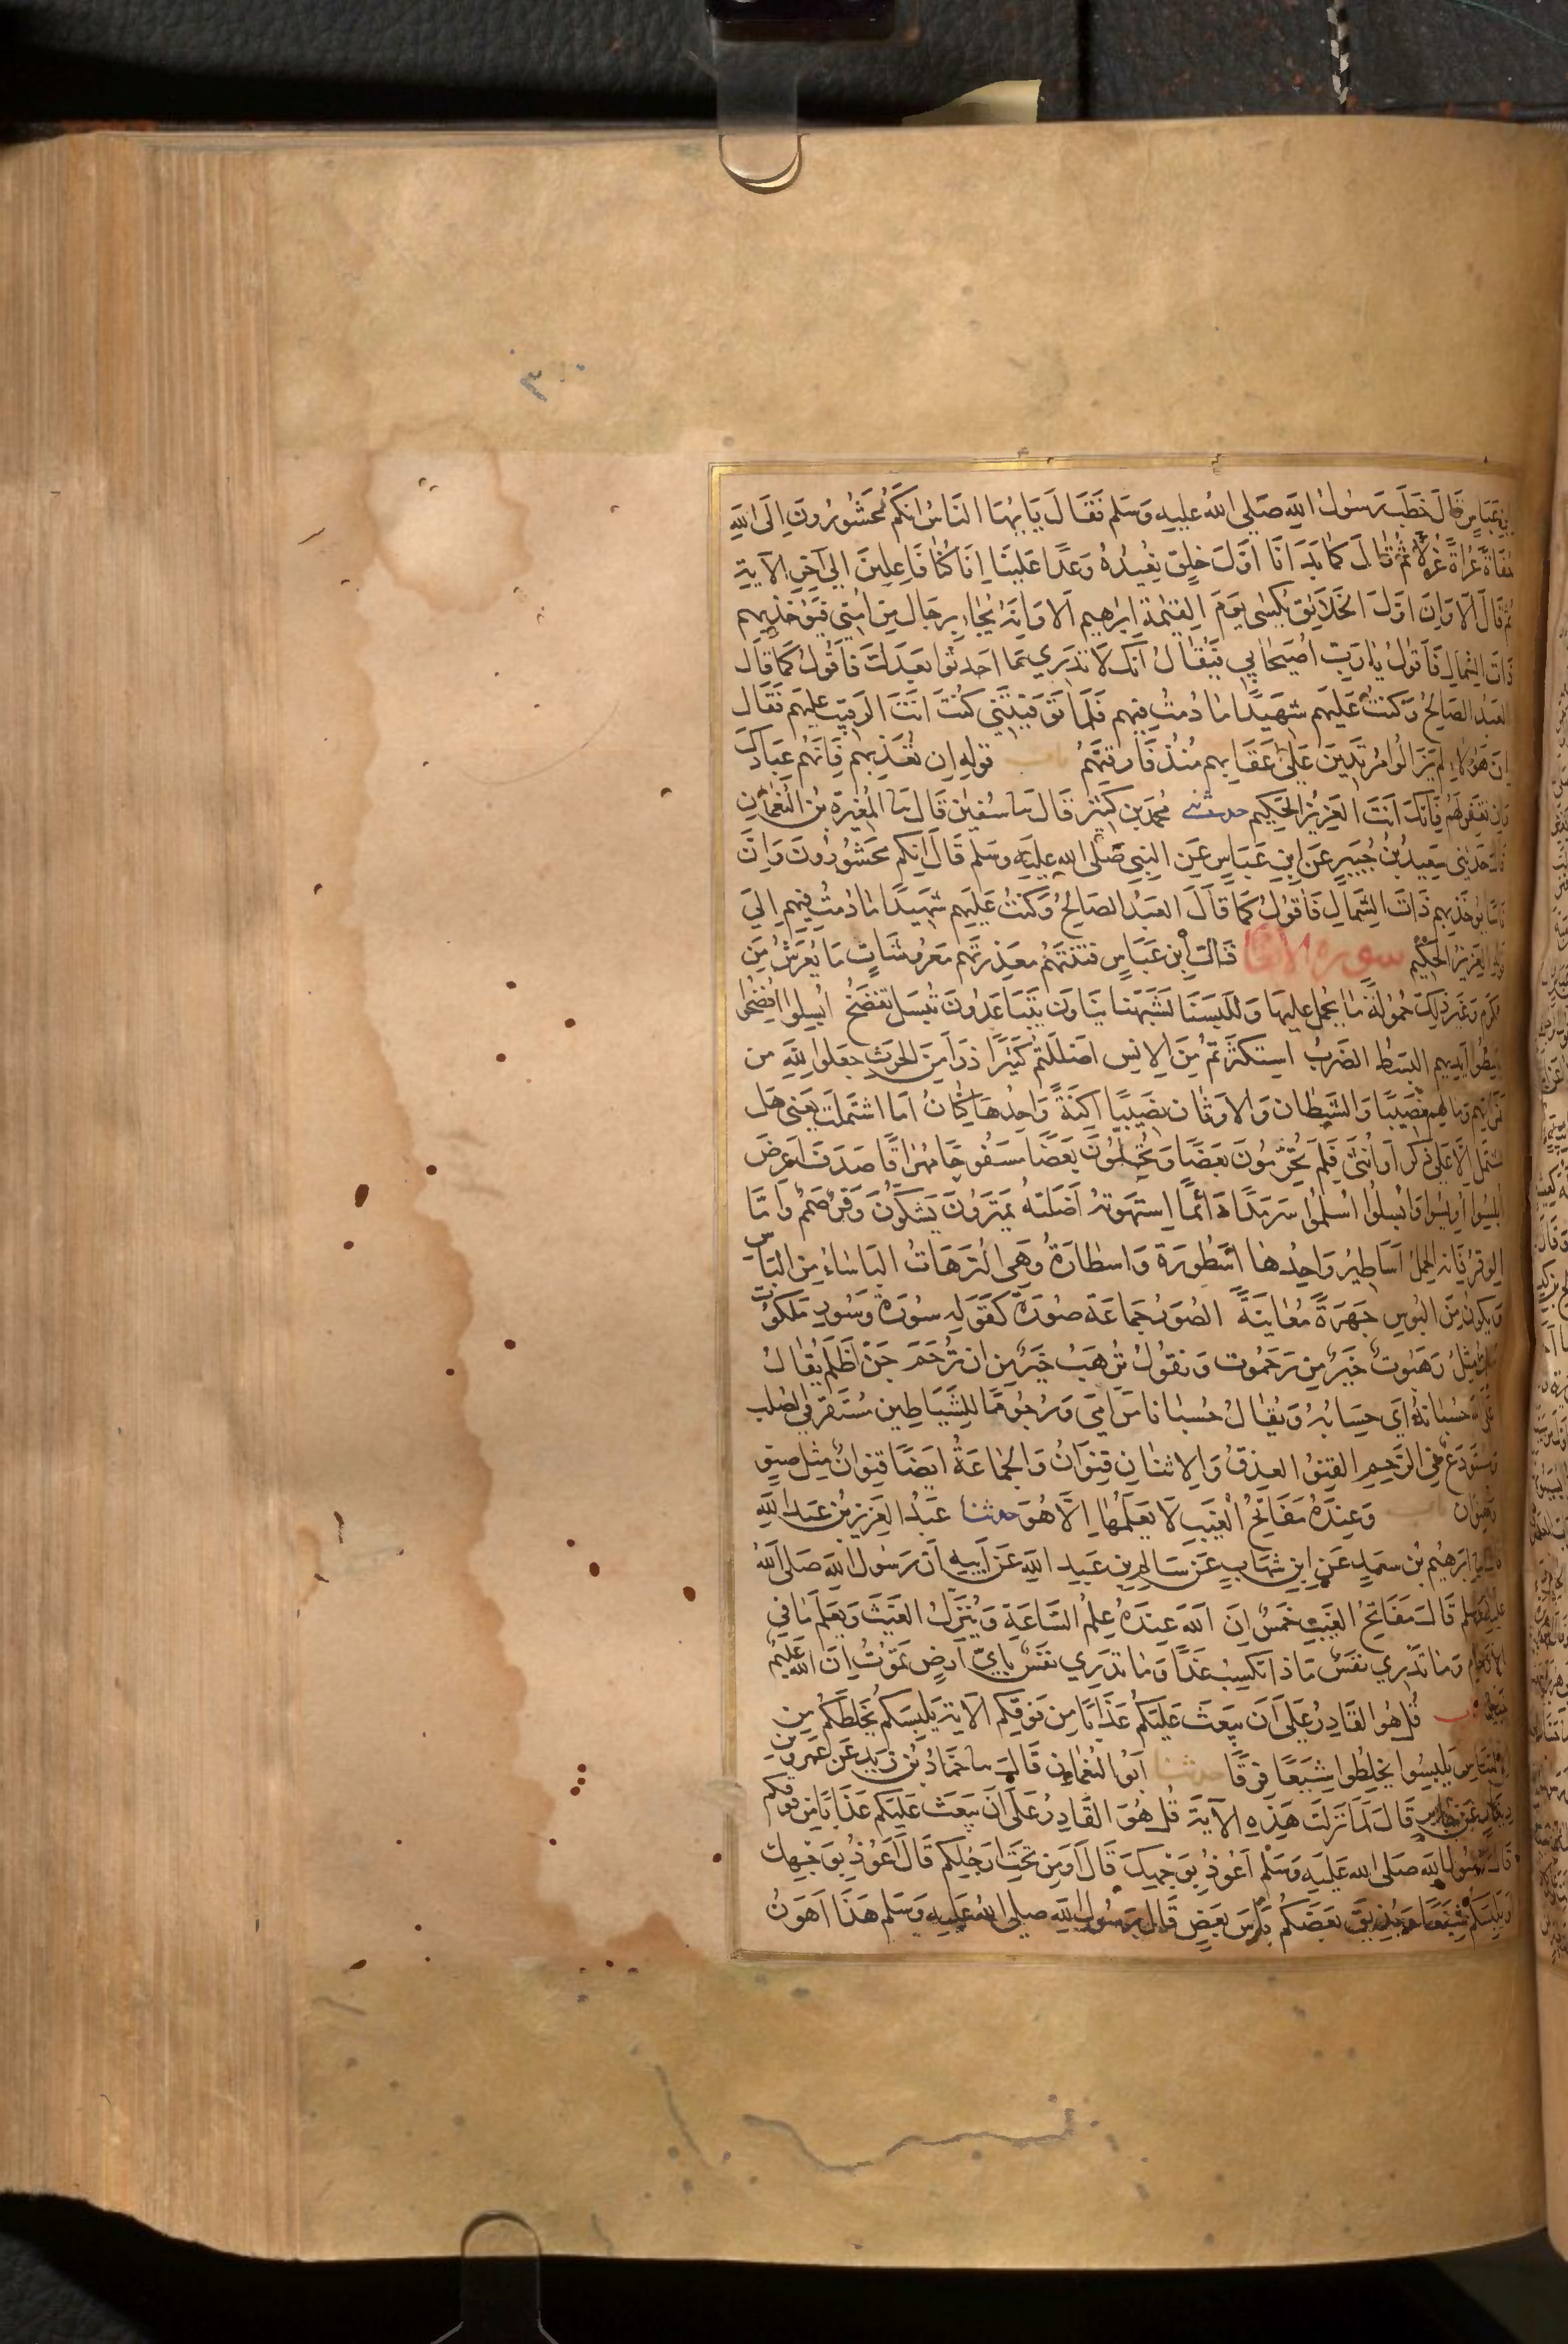 ابن عباس قال خطب رسول الله صلى الله عليه وسلم فقال يا ايها الناس انكم محشورون الى الله
حفاة عراة غرلا ثم قال كما بدانا اول خلق نعيده وعدا علينا انا كنا فاعلين الى اخر الآية
ثم قال الا وان اول الخلايق يكسى يوم القيمة ابرهيم الا وانه يجاء برجال من امتي فيؤخذ بهم
ذات الشمال فاقول يا رب اصيحابي فيقال انك لا تدري ما احدثوا بعدك فاقول كما قال
العبد الصالح وكنت عليهم شهيدا ما دمت فيهم فلما توفيتني كنت انت الرقيب عليهم فقال
ان هؤلاء لم يزالوا مرتدين على اعقابهم منذ فارقتهم باب قوله ان تعذبهم فانهم عبادك
وان تغفر لهم فانك انت العزيز الحكيم حدثني محمد بن كثير قال نا سفين قال نا المغيرة بن النعمان
قال حدثني سعيد بن جبير عن ابن عباس عن النبي صلى الله عليه وسلم قال انكم محشورون وان
ناسا يؤخذ بهم ذات الشمال فاقول كما قال العبد الصالح وكنت عليهم شهيدا ما دمت فيهم الى
قوله العزيز الحكيم سورة الانعام قال ابن عباس فتنتهم معذرتهم معروشات ما يعرش من
الكرم وغير ذلك حمولة ما يحمل عليها وللبسنا لشبهنا ينأون يتباعدون تبسل تفضح ابسلوا افضحوا
باسطوا ايديهم البسط الضرب استكثرتم من الانس اضللتم كثيرا ذرأ من الحرث جعلوا لله من
ثمراتهم ومالهم نصيبا وللشيطان والاوثان نصيبا اكنة واحدها كنان اما اشتملت يعني هل
تشتمل الا على ذكر او انثى فلم تحرمون بعضا وتحلون بعضا مسفوحا مهراقا صدف اعرض
ابلسوا اويسوا وابسلوا اسلموا سرمدا دائما استهوته اضلته يمترون يشكون وقر صمم واما
الوقر فانه الحمل اساطير واحدها اسطورة واسطارة وهي الترهات الباساء من الباس
ويكون من البوس جهرة معاينة الصور جماعة صورة كقوله سورة وسور ملكوت
ملك مثل رهبوت خير من رحموت وتقول ترهب خير من ان ترحم جن اظلم يقال
على الله حسبانه اي حسابه ويقال حسبانا مرامي ورجوما للشياطين مستقر في الصلب
ومستودع في الرحم القنو العذق والاثنان قنوان والجماعة ايضا قنوان مثل صنو
وصنوان باب وعنده مفاتح الغيب لا يعلمها الا هو حدثنا عبد العزيز بن عبد الله
قال نا ابرهيم بن سعد عن ابن شهاب عن سالم بن عبد الله عن ابيه ان رسول الله صلى الله
عليه وسلم قال مفاتح الغيب خمس ان الله عنده علم الساعة وينزل الغيث ويعلم ما في
الارحام وما تدري نفس ماذا تكسب غدا وما تدري نفس باي ارض تموت ان الله عليم
خبير باب قل هو القادر على ان يبعث عليكم عذابا من فوقكم الآية يلبسكم يخلطكم من
الالتباس يلبسوا يخلطوا شيعا فرقا حدثنا ابو النعمان قال نا حماد بن زيد عن عمرو بن
دينار عن جابر قال لما نزلت هذه الآية قل هو القادر على ان يبعث عليكم عذابا من فوقكم
قال رسول الله صلى الله عليه وسلم اعوذ بوجهك قال او من تحت ارجلكم قال اعوذ بوجهك
او يلبسكم شيعا ويذيق بعضكم باس بعض قال رسول الله صلى الله عليه وسلم هذا اهون